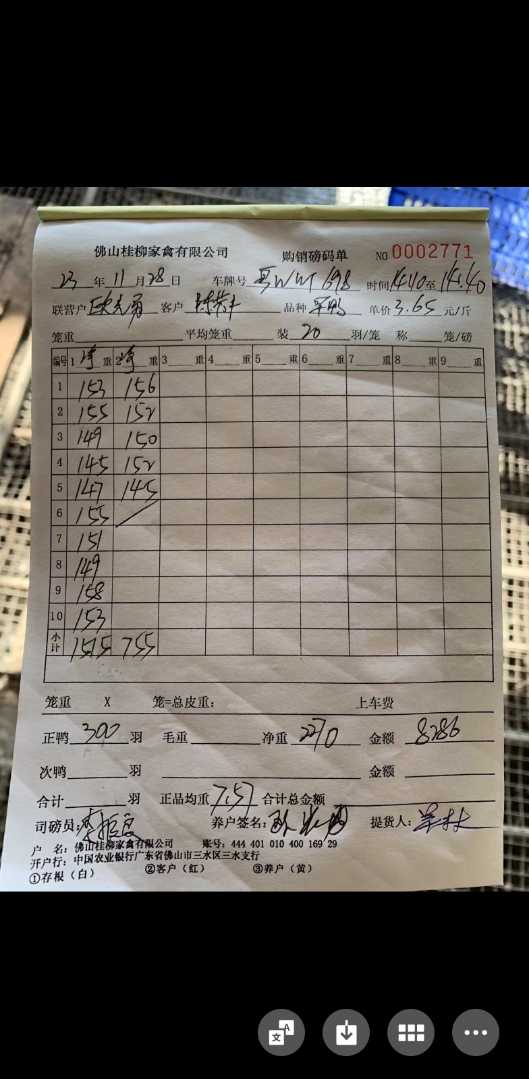 佛山桂柳家禽有限公司 购销磅码单 NO 0002771
23 年 11 月 28 日 车牌号 粤WWT698 时间 14:10 至 14:40
联营户 客户 品种 单价 3.65 元/斤
笼重 平均笼重 装 20 羽/笼 称 笼/磅
编号 1 净 重 2 净 重 3 重 4 重 5 重 6 重 7 重 8 重 9 重
1 153 156
2 155 152
3 149 150
4 145 152
5 147 145
6 155
7 151
8 149
9 158
10 153
小计 1515 755
笼重 X 笼=总皮重: 上车费
正鸭 300 羽 毛重 净重 2270 金额 8286
次鸭 羽 金额
合计 羽 正品均重 7.57 合计总金额
司磅员: 养户签名: 提货人:
户 名: 佛山桂柳家禽有限公司 账号: 444 401 010 400 169 29
开户行: 中国农业银行广东省佛山市三水区三水支行
①存根(白) ②客户(红) ③养户(黄)